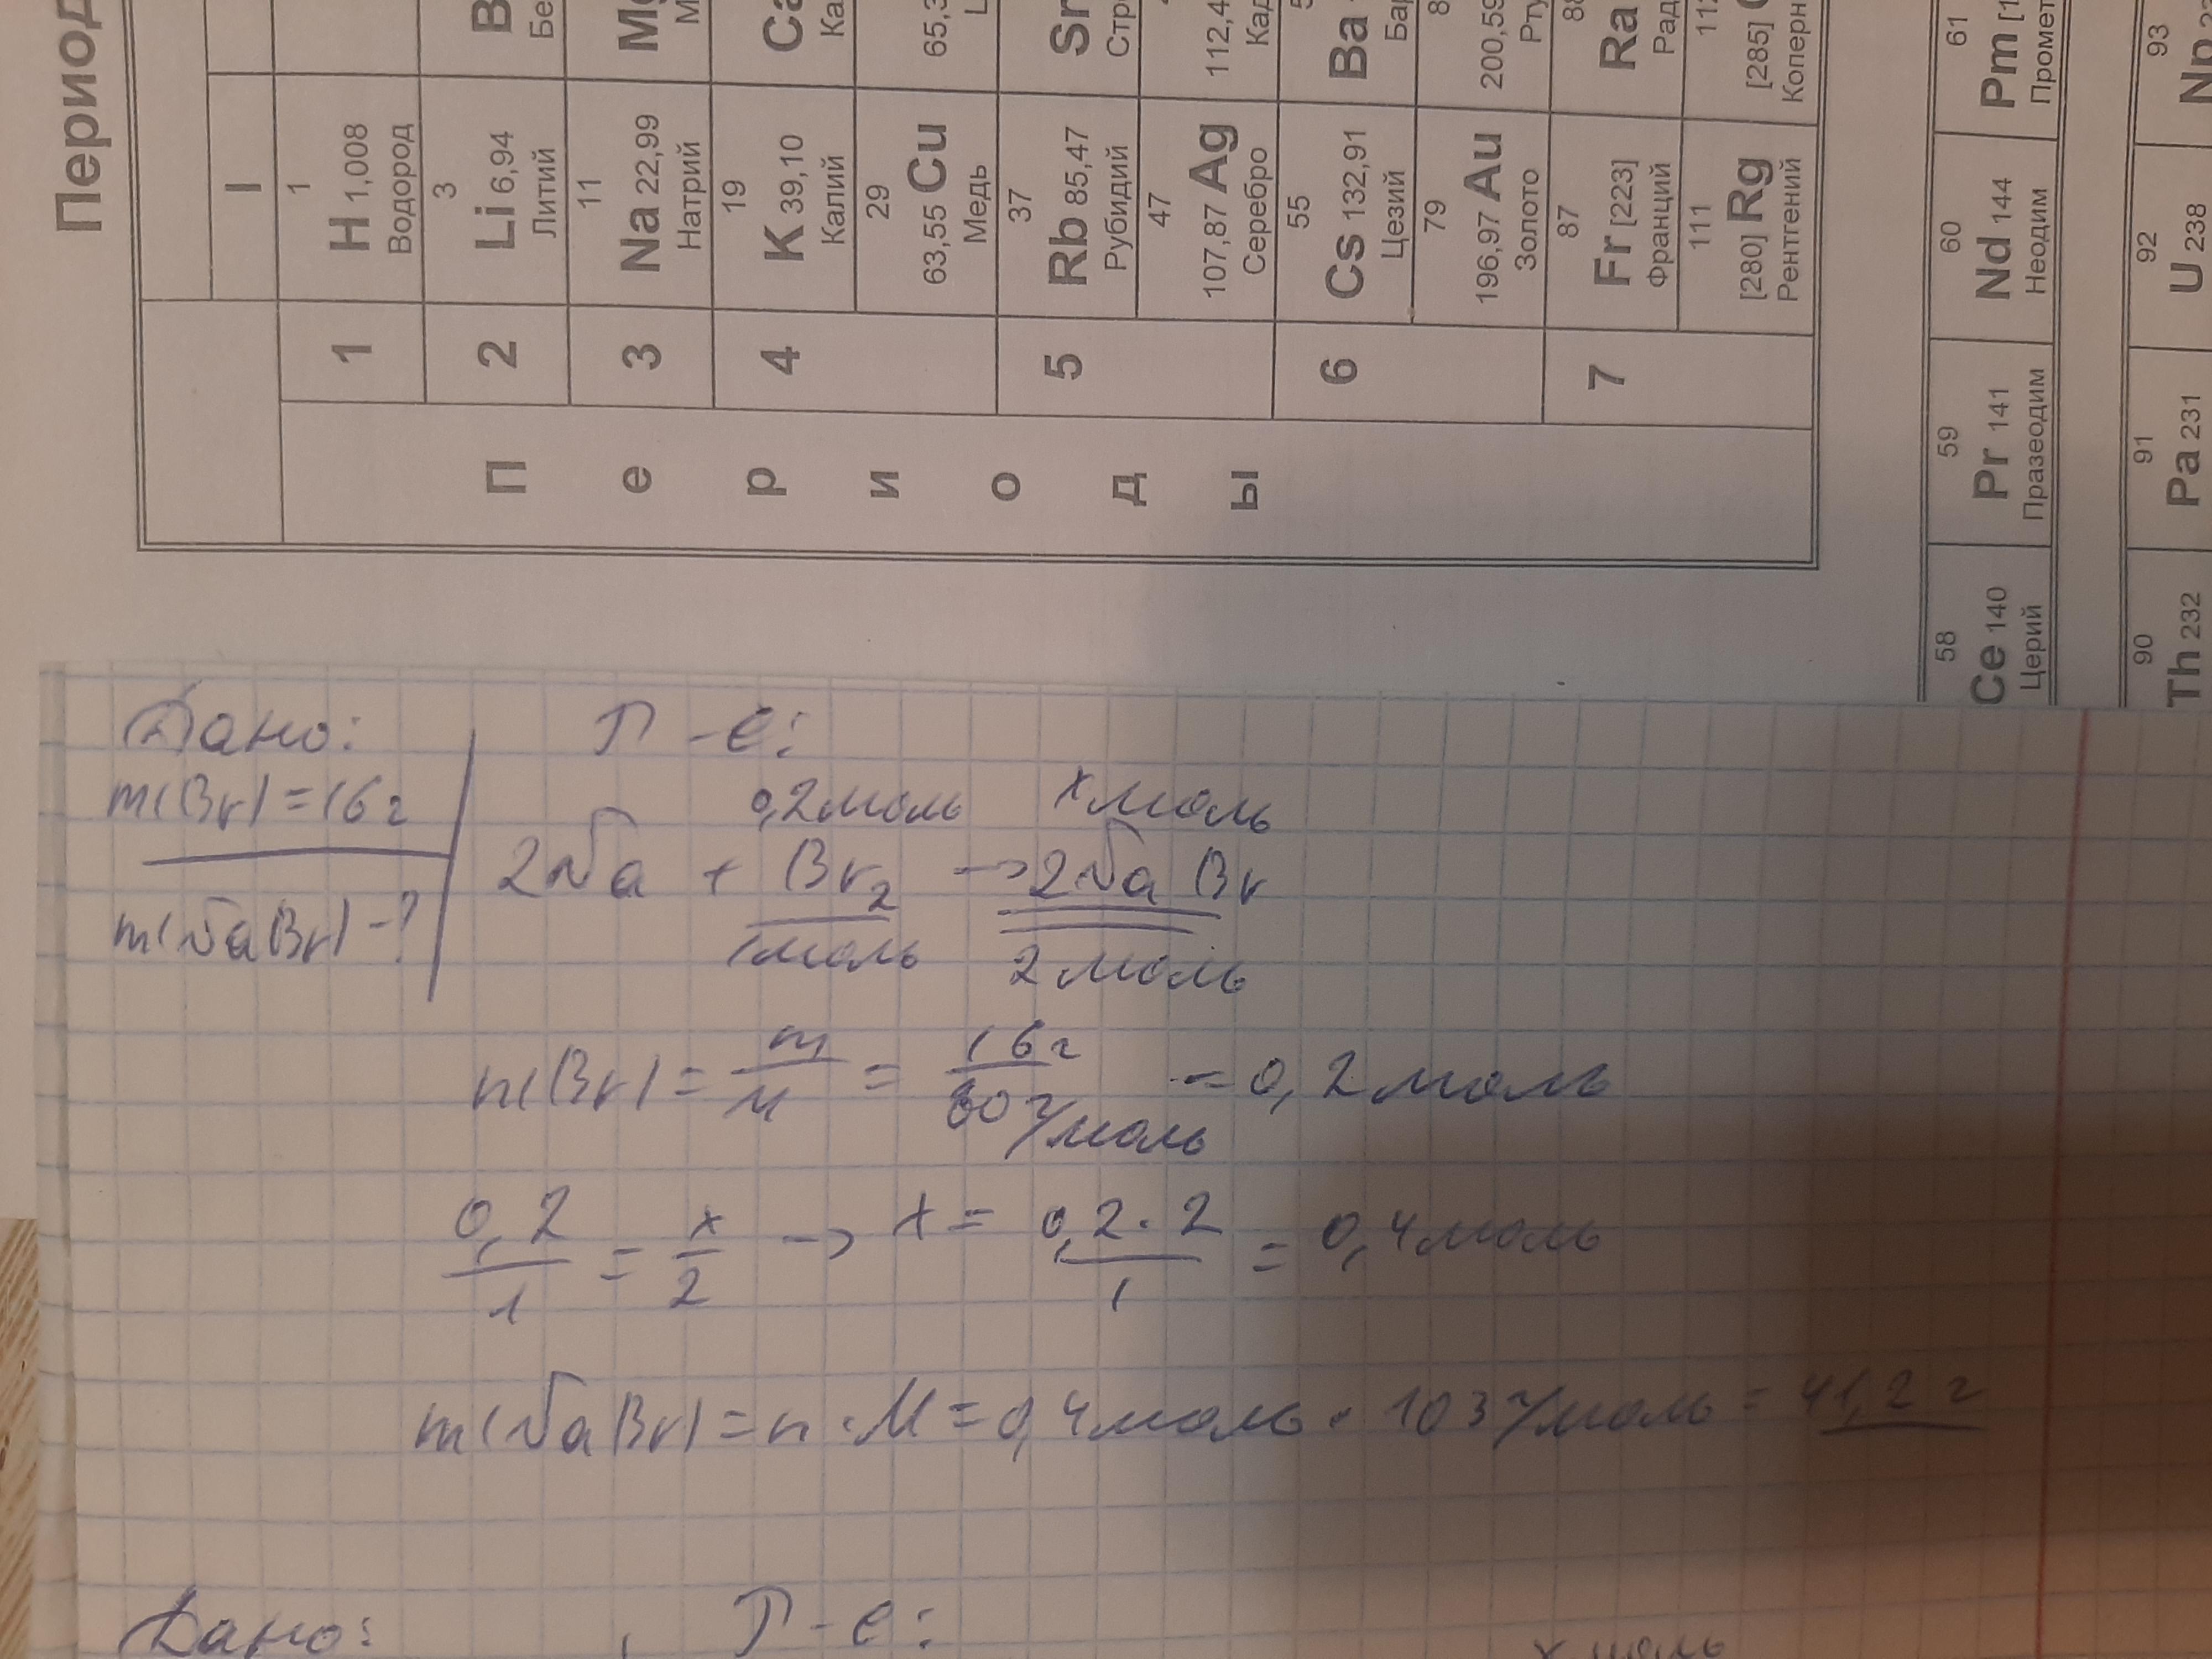 Период
I
1
1
H 1,008
Водород
2
3
Li 6,94
Литий
3
11
Na 22,99
Натрий
4
19
K 39,10
Калий
29
63,55 Cu
Медь
5
37
Rb 85,47
Рубидий
47
107,87 Ag
Серебро
6
55
Cs 132,91
Цезий
79
196,97 Au
Золото
7
87
Fr [223]
Франций
111
[280] Rg
Рентгений
Sr
112,4
Ba
200,59
Ra
[285]
Коперн
Периоды
58
Ce 140
Церий
59
Pr 141
Празеодим
60
Nd 144
Неодим
61
Pm [1
Промет
90
Th 232
91
Pa 231
92
U 238
93
Np
Дано: Р-е:
m(Br) = 16 г 0,2 моль x моль
2Na + Br2 → 2NaBr
m(NaBr) - ? 1 моль 2 моль
n(Br) = m/M = 16 г/80 г/моль = 0,2 моль
0,2/1 = x/2 → x = 0,2 · 2/1 = 0,4 моль
m(NaBr) = n · M = 0,4 моль · 103 г/моль = 41,2 г
Дано: Р-е:
x моль